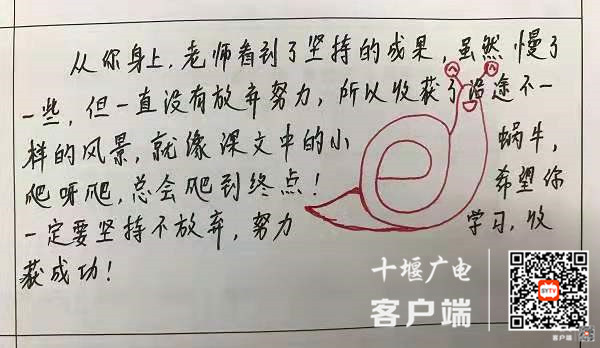 从你身上,老师看到了坚持的成果,虽然慢了
一些,但一直没有放弃努力,所以收获了沿途不一
样的风景,就像课文中的小蜗牛,
爬呀爬,总会爬到终点!希望你
一定要坚持不放弃,努力学习,收
获成功!
十堰广电
客户端
SYTV
客户端